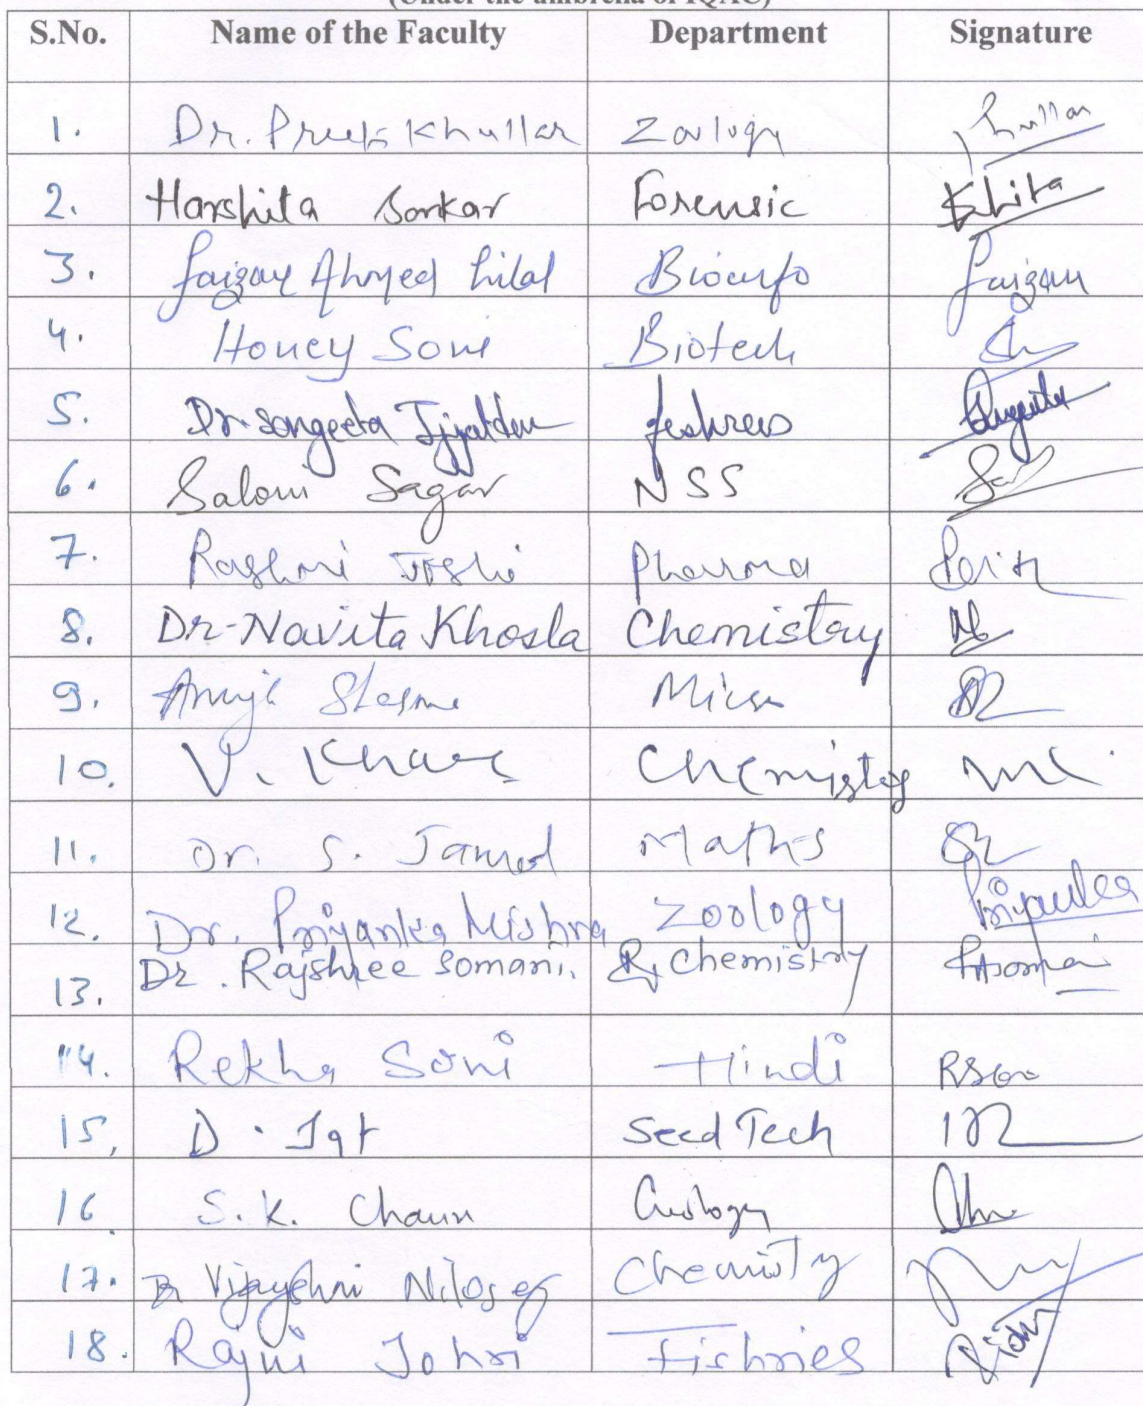 (Under the umbrella of IQAC)
S.No. Name of the Faculty Department Signature
1. Dr. Preeti Khullar Zoology Khullar
2. Harshita Sarkar Forensic
3. Faizan Ahmed Hilal Bioinfo Faizan
4. Honey Soni Biotech
5. Dr. Sangeeta Sangeeta
6. Saloni Sagar NSS
7. Rashmi Joshi Pharma
8. Dr. Navita Khosla Chemistry
9. Micro
10. V. Khare Chemistry
11. Dr. S. Maths
12. Dr. Priyanka Mishra Zoology Priyanka
13. Dr. Rajshree Somani. Chemistry RSomani
14. Rekha Soni Hindi RSoni
15. D. Seed Tech
16. S.K. Geology
17. Dr Vijayshri Chemistry
18. Rajni Johri Fishries